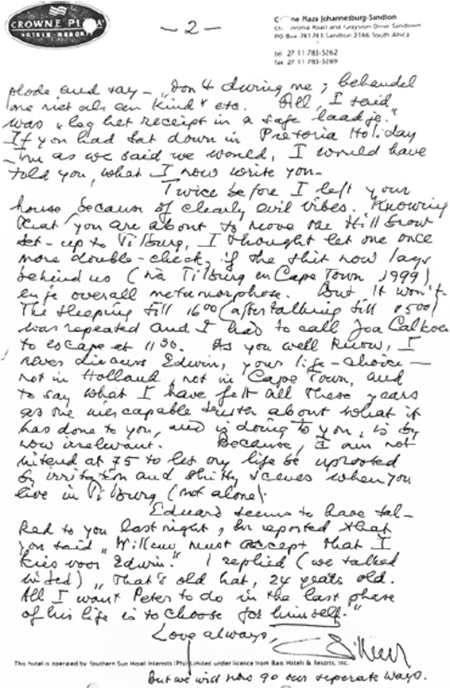 CROWNE PLAZA
HOTELS · RESORTS
— 2 —
Plaza Johannesburg-Sandton
Road and Grayston Drive Sandown
PO Box 781743 Sandton 2146 South Africa
tel 27 11 783-5262
fax 27 11 783-5289
plode and say – "Don't during me; behandel
me niet als een kind" etc. All, I said
was "leg het receipt in a safe laadje."
If you had sat down in Pretoria Holiday
Inn as we said we would, I would have
told you, what I now write you –
Twice before I left your
house, because of clearly evil vibes. Knowing
that you are about to move the Hillbrow
set-up to Tilburg, I thought let one once
more double-check, if the shit now lays
behind us (na Tilburg en Cape Town 1999)
overall metamorphose. But it won't.
The sleeping till 1600 (after talking till 0500)
was repeated and I had to call Joa Calkoen
to escape at 1130. As you well know, I
never discuss Edwin, your life-choice –
not in Holland, not in Cape Town, and
to say what I have felt all these years
as an about what it
has done to you, and is doing to you, is by
now irrelevant. Because, I am not
intend at 75 to let my life be uprooted
by irritation and shitty scenes when you
live in Tilburg (not alone).
Eduard seems to have tal-
ked to you last night, he reported that
you said "Willem must accept that I
kies voor Edwin." I replied (we talked
) "That's old hat, 24 years old.
All I want Peter to do in the last phase
of his life is to choose for himself."
Love always,
Willem
This hotel is operated by Southern Sun Hotel Interests (Pty) Limited under licence from Bass Hotels & Resorts, Inc.
but we will now go our seperate ways.